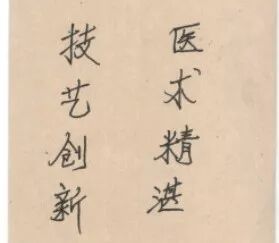 医术精湛
技艺创新